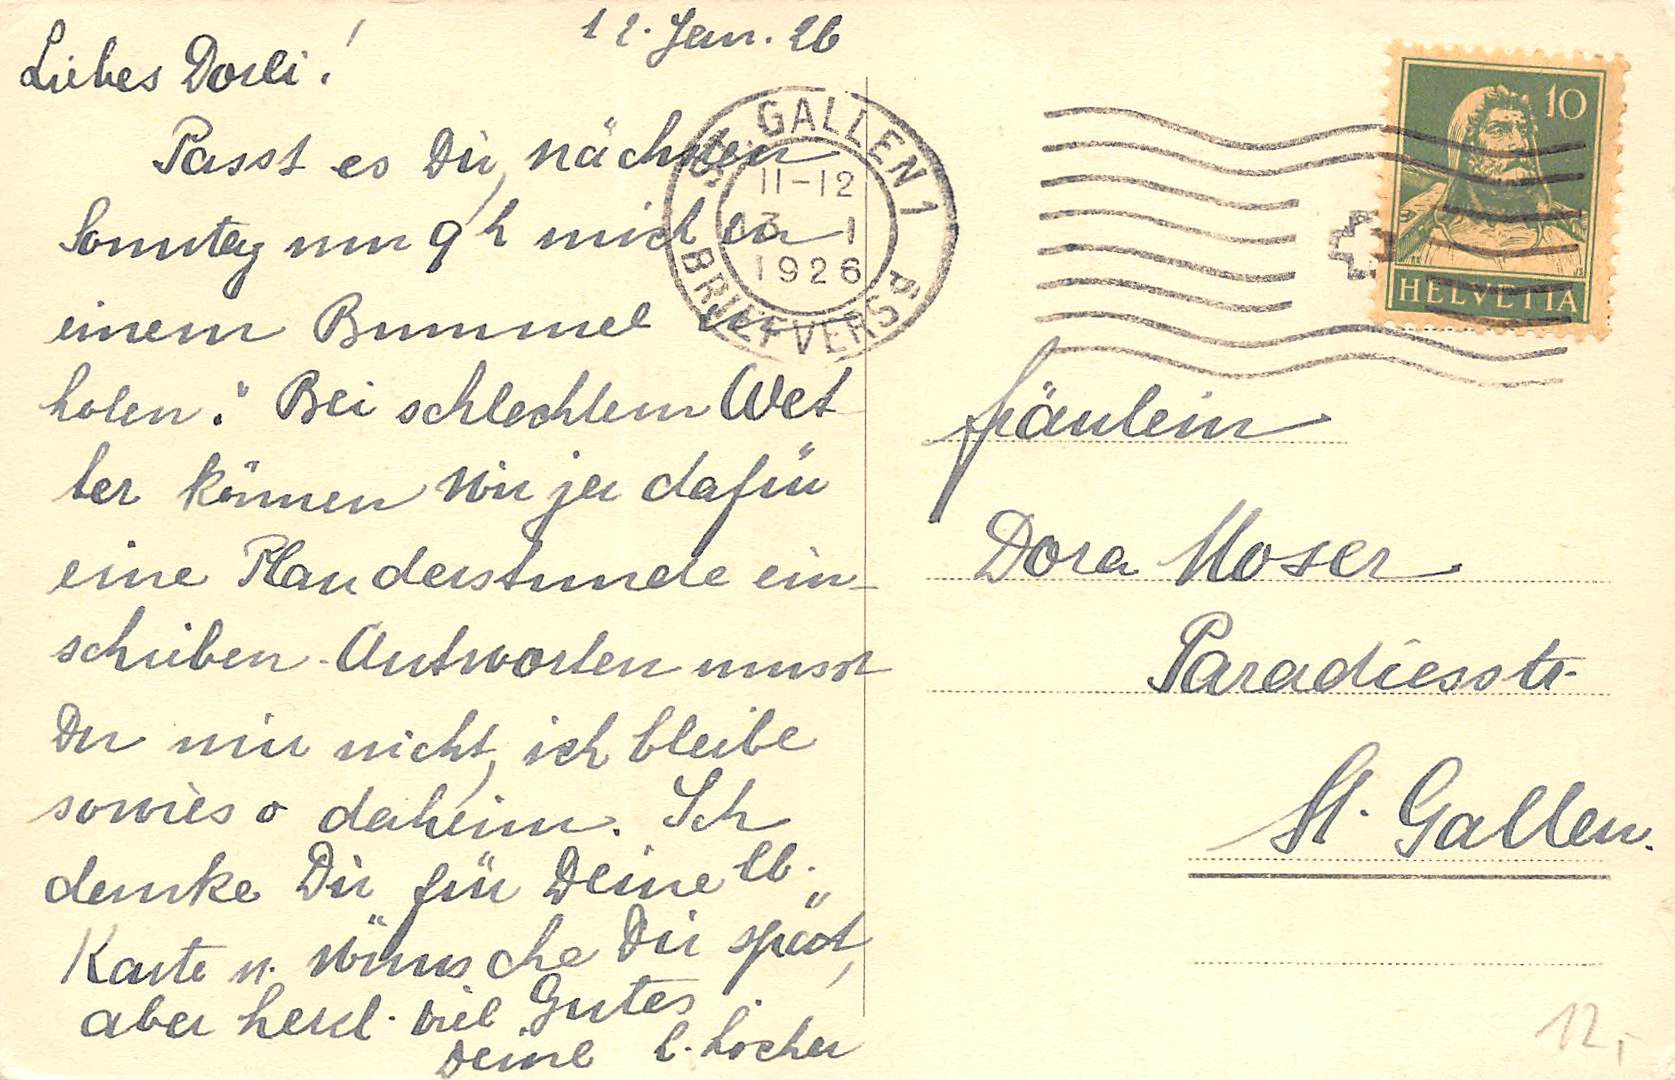 12. Jan. 26
Liebes Dorli!
Passt es Dir, nächsten
Sonntag um 9 h mich zu
einem Bummel zu
holen? Bei schlechtem Wet
ter können wir ja dafür
eine Plauderstunde ein-
schieben. Antworten musst
Du mir nicht, ich bleibe
sowieso daheim. Ich
denke Dir für Deine lb.
Karte u. wünsche Dir spät,
aber herzl. viel Gutes
Deine L. Locher
ST. GALLEN 1
11-12
13 - 1
1926
BRIEFVERS
10
HELVETIA
Fräulein
Dora Moser
Paradiesstr.
St. Gallen.
12,-